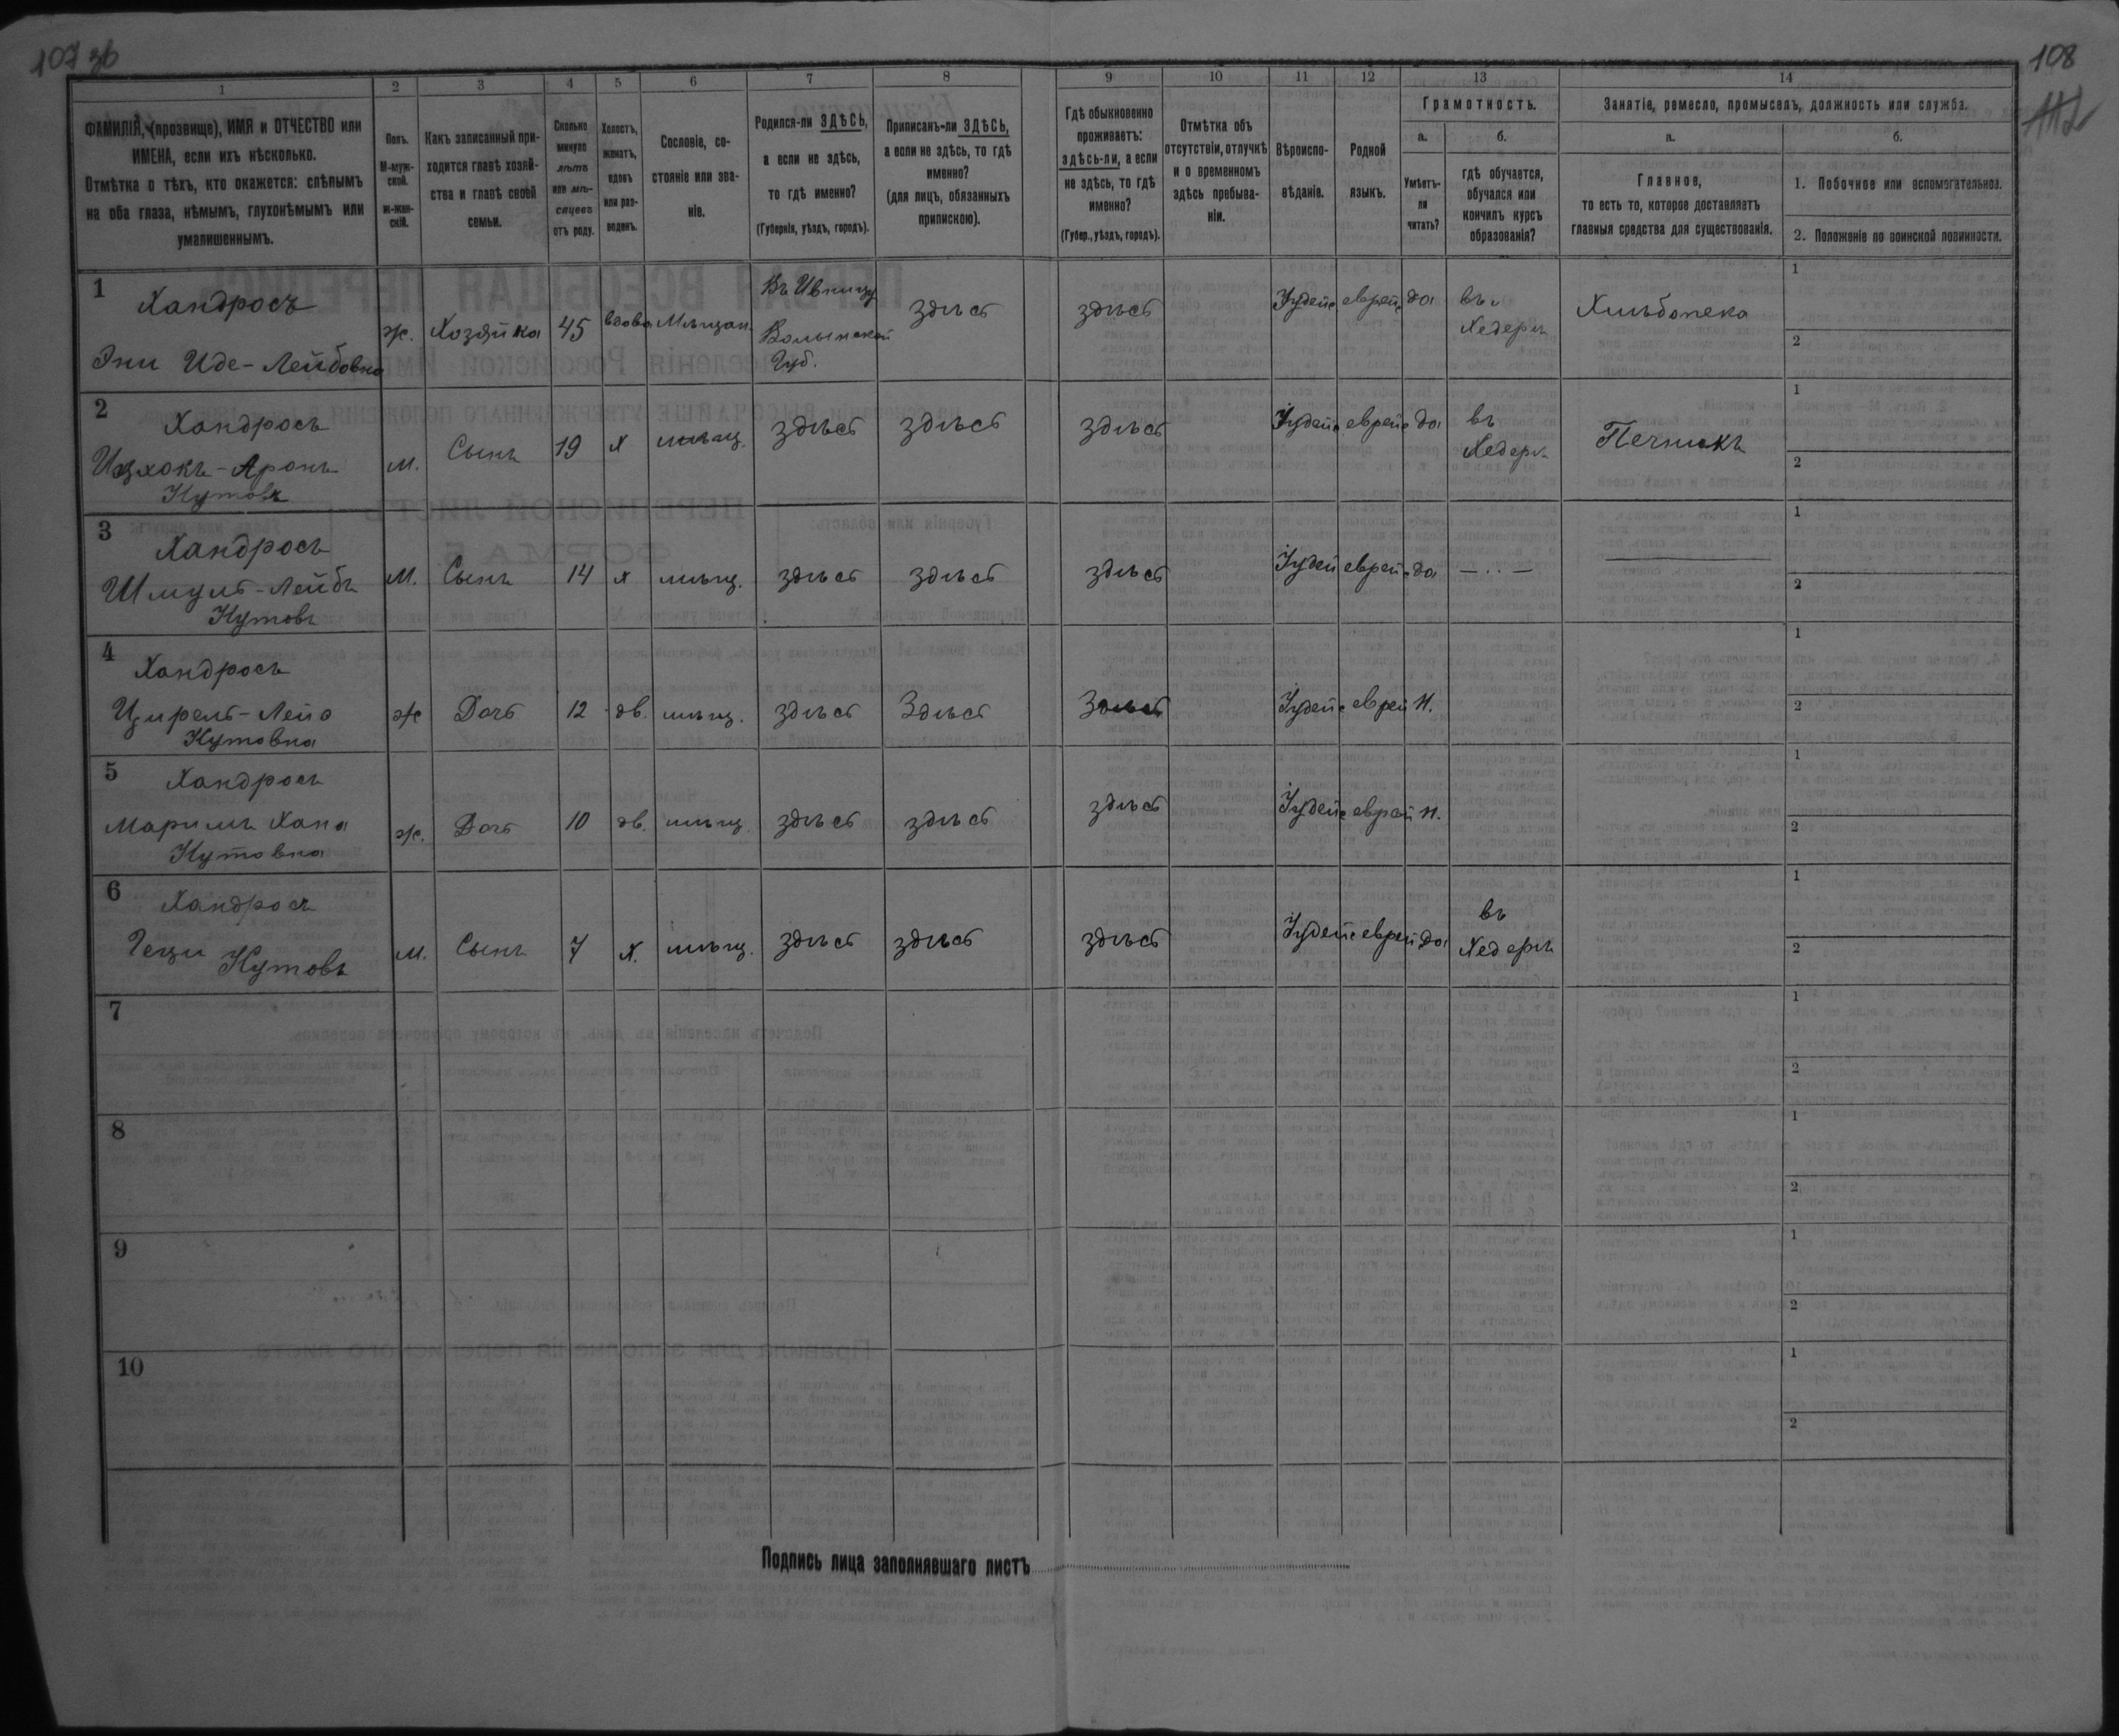 107 зв
108
1
2
3
4
5
6
7
8
9
10
11
12
13
14
ФАМИЛІЯ, (прозвище), ИМЯ и ОТЧЕСТВО или
ИМЕНА, если ихъ нѣсколько.
Отмѣтка о тѣхъ, кто окажется: слѣпымъ
на оба глаза, нѣмымъ, глухонѣмымъ или
умалишеннымъ.
Полъ.
М-муж-
ской.
ж-жен-
скій.
Какъ записанный при-
ходится главѣ хозяй-
ства и главѣ своей
семьи.
Сколько
минуло
лѣтъ
или мѣ-
сяцевъ
отъ роду.
Холостъ,
женатъ,
вдовъ
или раз-
веденъ.
Сословіе, со-
стояніе или зва-
ніе.
Родился-ли ЗДѢСЬ,
а если не здѣсь,
то гдѣ именно?
(Губернія, уѣздъ, городъ).
Приписанъ-ли ЗДѢСЬ,
а если не здѣсь, то гдѣ
именно?
(для лицъ, обязанныхъ
припискою).
Гдѣ обыкновенно
проживаетъ:
здѣсь-ли, а если
не здѣсь, то гдѣ
именно?
(Губер., уѣздъ, городъ).
Отмѣтка объ
отсутствіи, отлучкѣ
и о временномъ
здѣсь пребыва-
ніи.
Вѣроиспо-
вѣданіе.
Родной
языкъ.
Грамотность.
а.
Умѣетъ-
ли
читать?
б.
гдѣ обучается,
обучался или
кончилъ курсъ
образованія?
Занятіе, ремесло, промыселъ, должность или служба.
а.
Главное,
то есть то, которое доставляетъ
главныя средства для существованія.
б.
1. Побочное или вспомогательное.
2. Положеніе по воинской повинности.
1
Хандросъ
Эни Иде-Лейбовна
ж.
Хозяйка
45
вдова
Мѣщан.
Въ Ивницу
Волынской
Губ.
здѣсь
здѣсь
Іудейс
еврейс
да
въ
Хедерѣ
Хлѣбопека
1
2
2
Хандросъ
Ицхокъ-Аронъ
Нутовъ
м.
Сынъ
19
х
мѣщ.
здѣсь
здѣсь
здѣсь
Іудейс
еврейс
да
въ
Хедерѣ
Печникъ
1
2
3
Хандросъ
Шмуль-Лейбъ
Нутовъ
м.
Сынъ
14
х
мѣщ.
здѣсь
здѣсь
здѣсь
Іудей
еврейс
да
— .. —
1
2
4
Хандросъ
Ципрель-Леія
Нутовна
ж
Дочь
12
дв.
мѣщ.
здѣсь
Здѣсь
Здѣсь
Іудейс
еврей
н.
1
2
5
Хандросъ
Маримъ Хана
Нутовна
ж.
Дочь
10
дв.
мѣщ.
здѣсь
здѣсь
здѣсь
Іудейс
еврей
н.
1
2
6
Хандросъ
Геци Нутовъ
м.
Сынъ
7
х.
мѣщ.
здѣсь
здѣсь
здѣсь
Іудейс
еврей
да
въ
Хедерѣ
1
2
7
1
2
8
1
2
9
1
2
10
1
2
Подпись лица заполнявшаго листъ